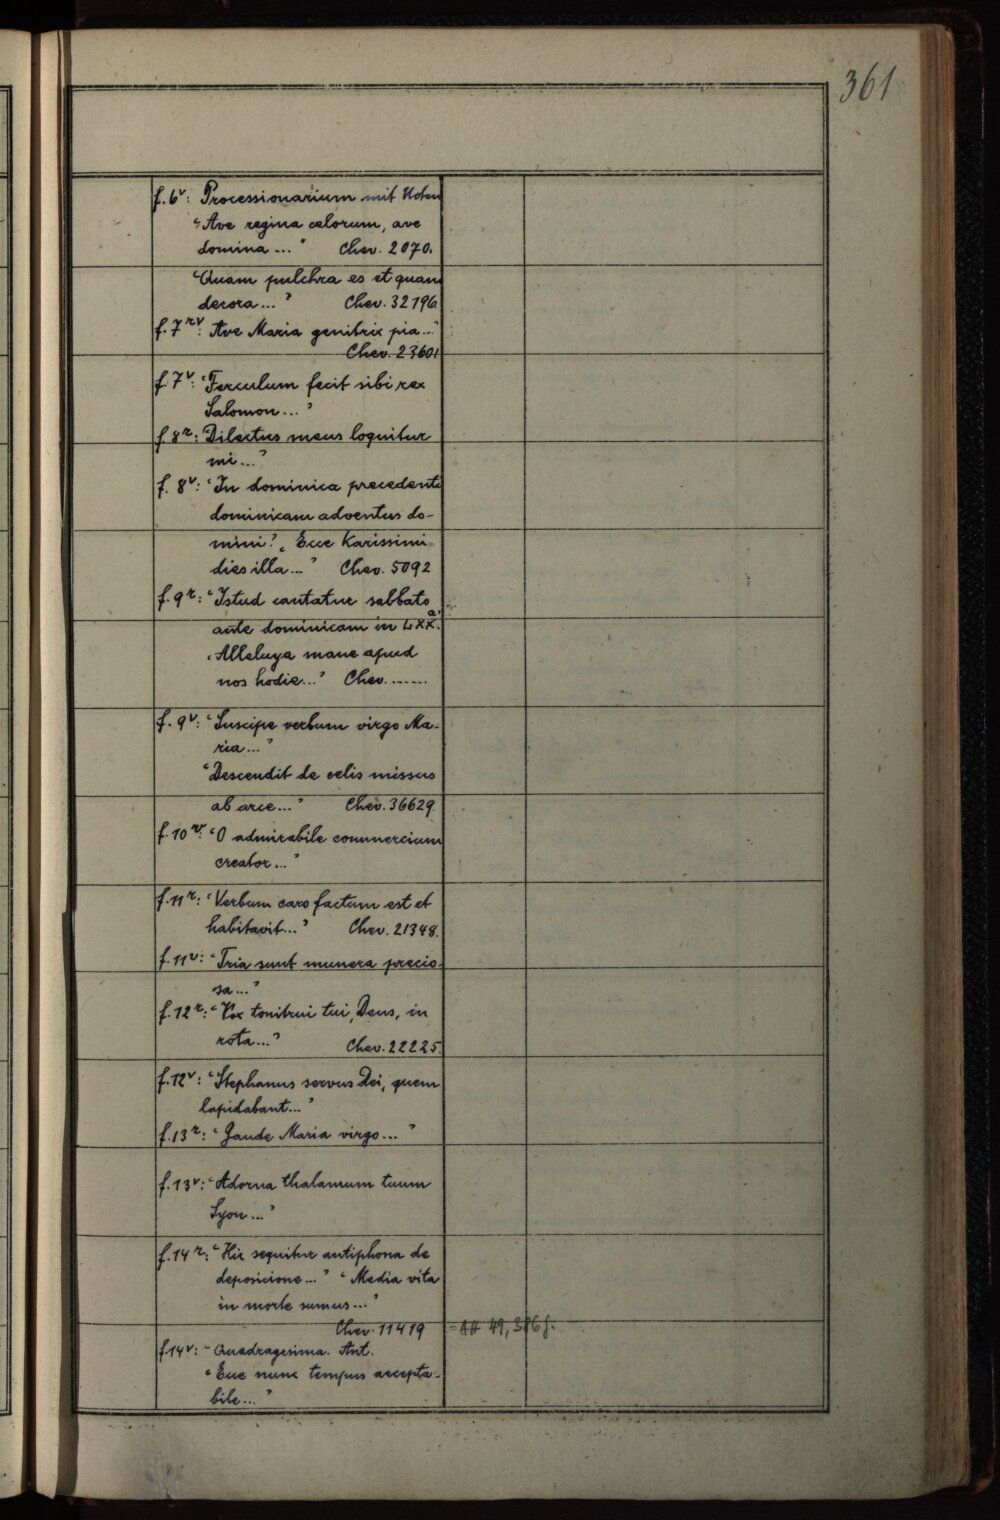 361
f. 6v: Processionarium mit Noten
"Ave regina celorum, ave
domina ..." Chev. 2070.
"Quam pulchra es et quam
decora ..." Chev. 32196
f. 7rv: Ave Maria genitrix pia ..."
Chev. 23601
f. 7v: "Ferculum fecit sibi rex
Salomon ..."
f 8r: Dilectus meus loquitur
mi ..."
f. 8v: "In dominica precedenti
dominicam adventus do-
mini". "Ecce Karissimi
dies illa ..." Chev. 5092
f. 9r: "Istud cantatur sabbato
ante dominicam in LXXa.
"Alleluya mane apud
nos hodie ..." Chev. .......
f. 9v: "Suscipe verbum virgo Ma-
ria ..."
"Descendit de celis missus
ab arce ..." Chev. 36629.
f. 10v: "O admirabile commercium
creator ..."
f. 11r: "Verbum caro factum est et
habitavit ..." Chev. 21348.
f. 11v: "Tria sunt munera precio-
sa ..."
f. 12r: "Vox tonitrui tui, Deus, in
rota ..." Chev. 22225.
f. 12v: "Stephanus servus Dei, quem
lapidabant ..."
f. 13r: "Gaude Maria virgo ..."
f. 13v: "Adorna thalamum tuum
Syon ..."
f. 14r: "Hic sequitur antiphona de
deposicione ..." "Media vita
in morte sumus ..."
Chev. 11419 = AH 49, 386f.
f. 14v: - Quadragesima. Ant.
"Ecce nunc tempus accepta-
bile ..."